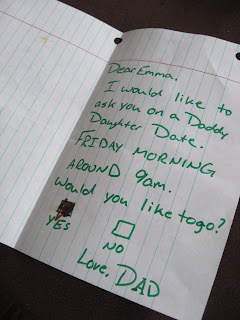 Dear Emma.
I would like to
ask you on a Daddy
Daughter Date.
FRIDAY MORNING
AROUND 9am.
Would you like to go?
YES
NO
Love, DAD